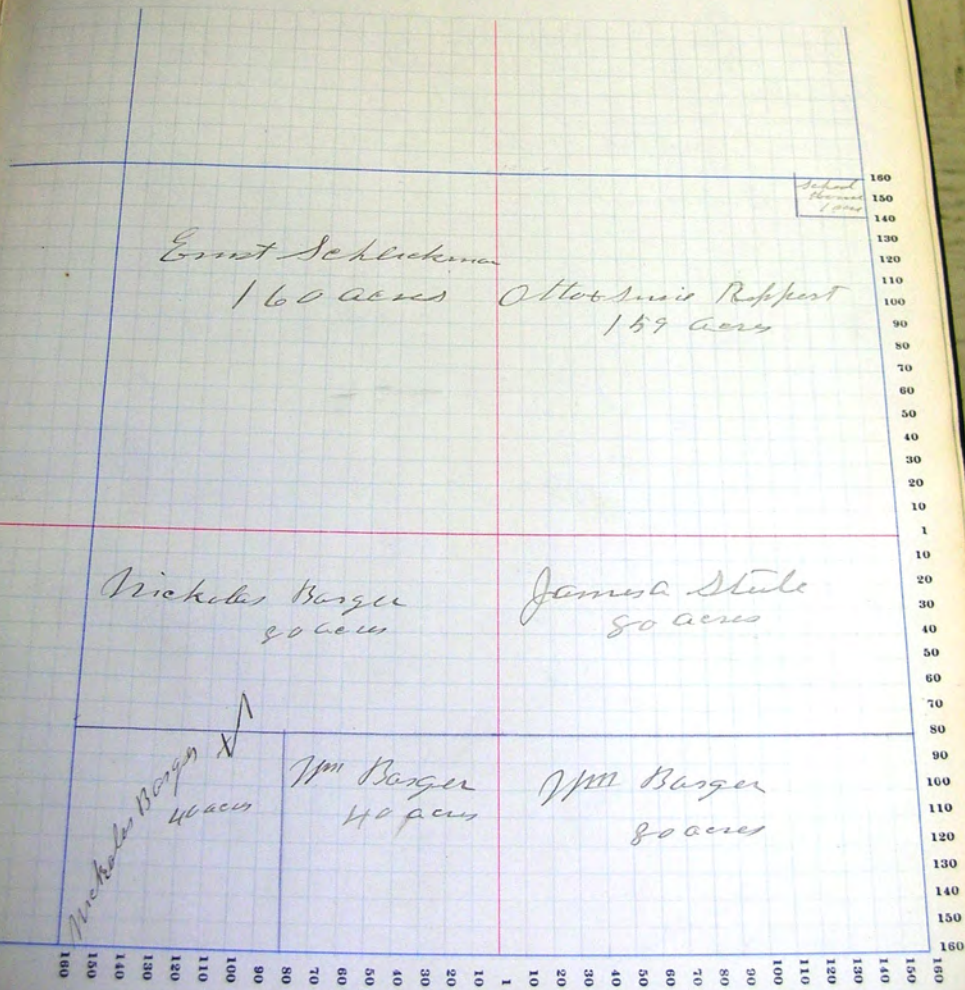 School
House
1 acre
Ernst Schleickman
160 acres
Otto & Susie Reppert
159 acres
Nickolas Barger
80 acres
James A Stule
80 acres
Nickolas Barger
40 acres
X
Wm Barger
40 acres
Wm Barger
80 acres
160
150
140
130
120
110
100
90
80
70
60
50
40
30
20
10
1
10
20
30
40
50
60
70
80
90
100
110
120
130
140
150
160
160 150 140 130 120 110 100 90 80 70 60 50 40 30 20 10 1 10 20 30 40 50 60 70 80 90 100 110 120 130 140 150 160